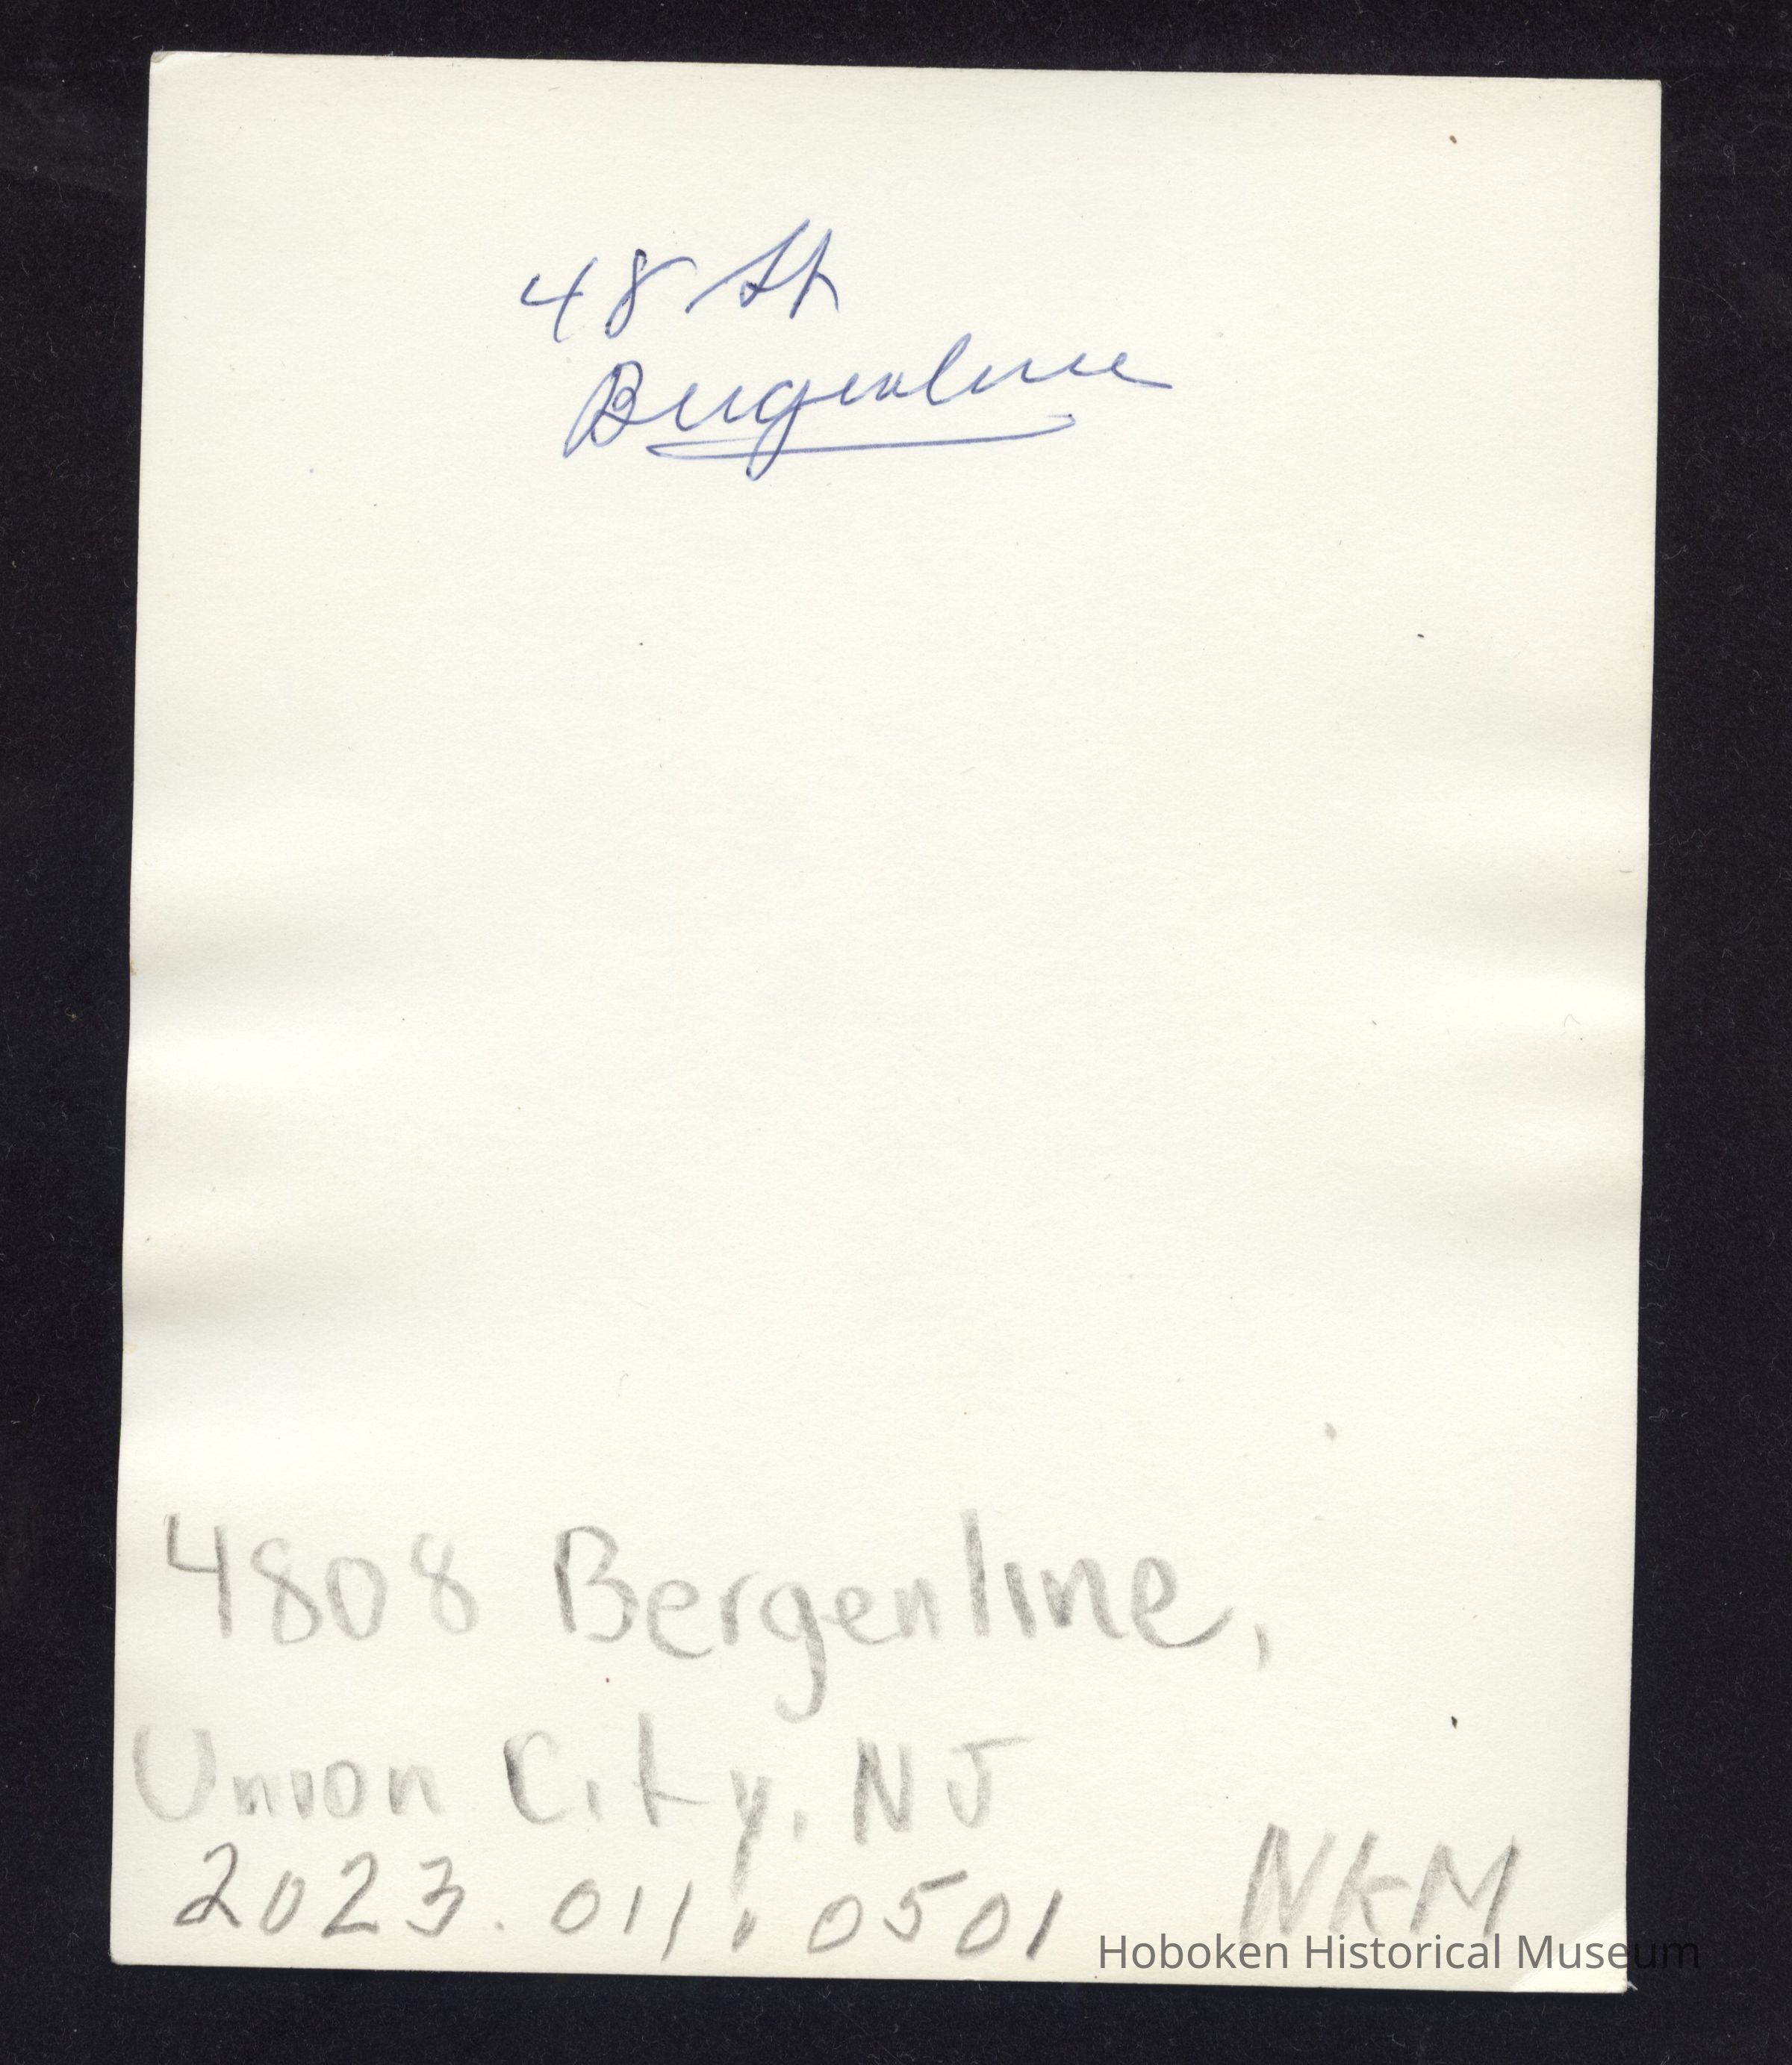 48 St
Bergenline
4808 Bergenline,
Union City, NJ
2023.011.0501 NKM
Hoboken Historical Museum